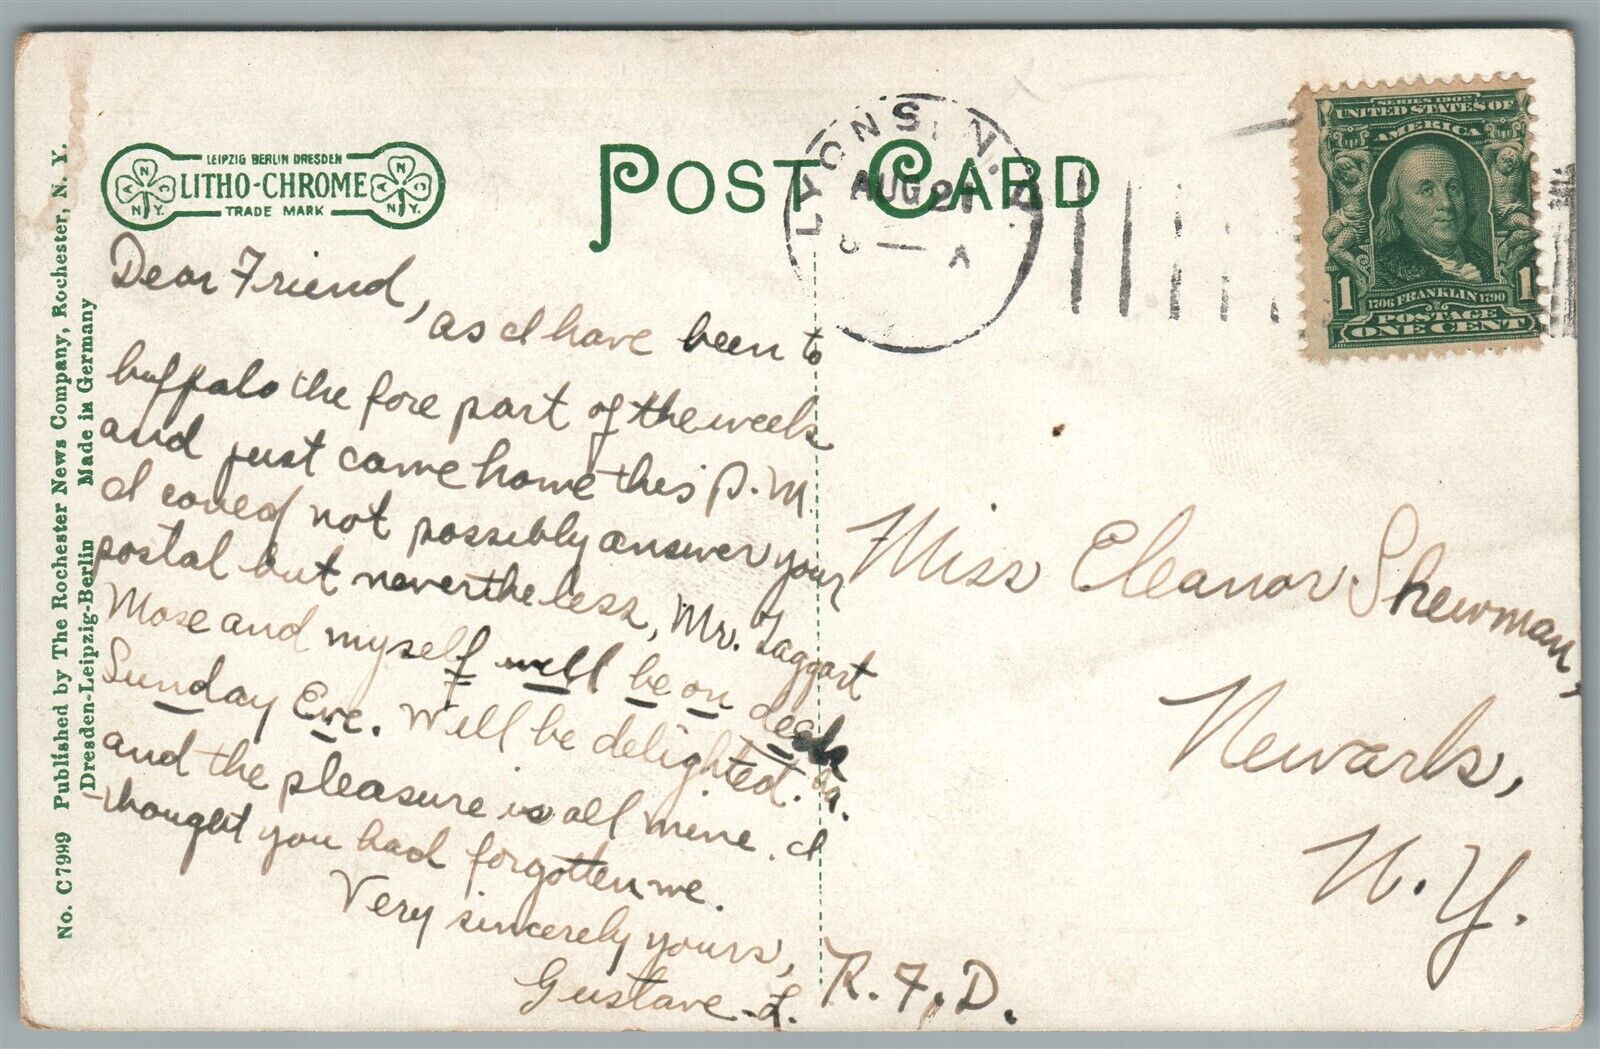 No. C7999 Published by The Rochester News Company, Rochester, N. Y.
Dresden-Leipzig-Berlin Made in Germany
LEIPZIG BERLIN DRESDEN
LITHO-CHROME
TRADE MARK
ANC N.Y.
ANC N.Y.
POST CARD
LYONS, N.Y.
AUG 21
A
SERIES 1902
UNITED STATES OF
AMERICA
1 1706 FRANKLIN 1790 1
POSTAGE
ONE CENT
Dear Friend,
as I have been to
buffalo the fore part of the week
and just came home this P.M.
I coued not possibly answer your
postal but nevertheless, Mr. Taggart
Mose and myself will be on deck
Sunday Eve. Will be delighted.
and the pleasure is all mine. I
thought you had forgotten me.
Very sincerely yours,
Gustave L.
Miss Eleanor Shewman,
Newark,
N.Y.
R.F.D.